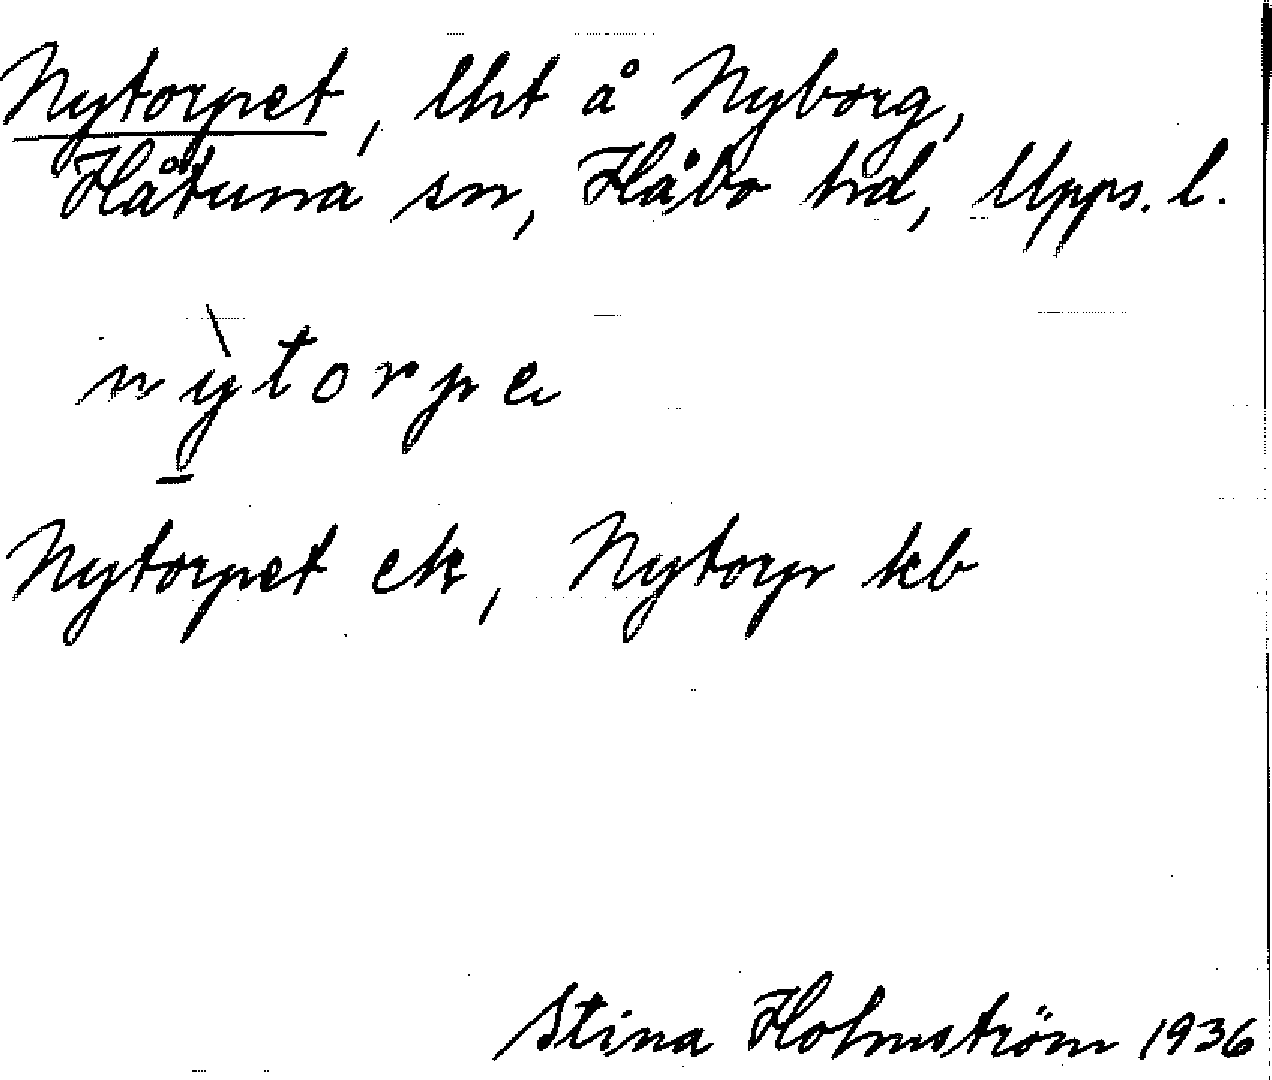 Nytorpet, lht å Nyborg,
Håtuna sn, Håbo hd, Upps. l.
nỳ̠torpe
Nytorpet ek, Nytorp kb
Stina Holmström 1936